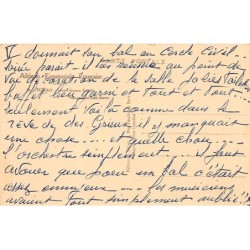 donnait son bal au Cercle Civil
paraît il au point de
vue décoration de la salle Jolies Toilettes
buffet bien garni et tout et tout
seulement voilà comme dans le
rêve de des Grieux il manquait
une chose... et quelle chose...
l'orchestre simplement... il faut
avouer que pour un bal c'était
assez ennuyeux... les musiciens
avaient tout simplement oublié!!
CARTE POSTALE